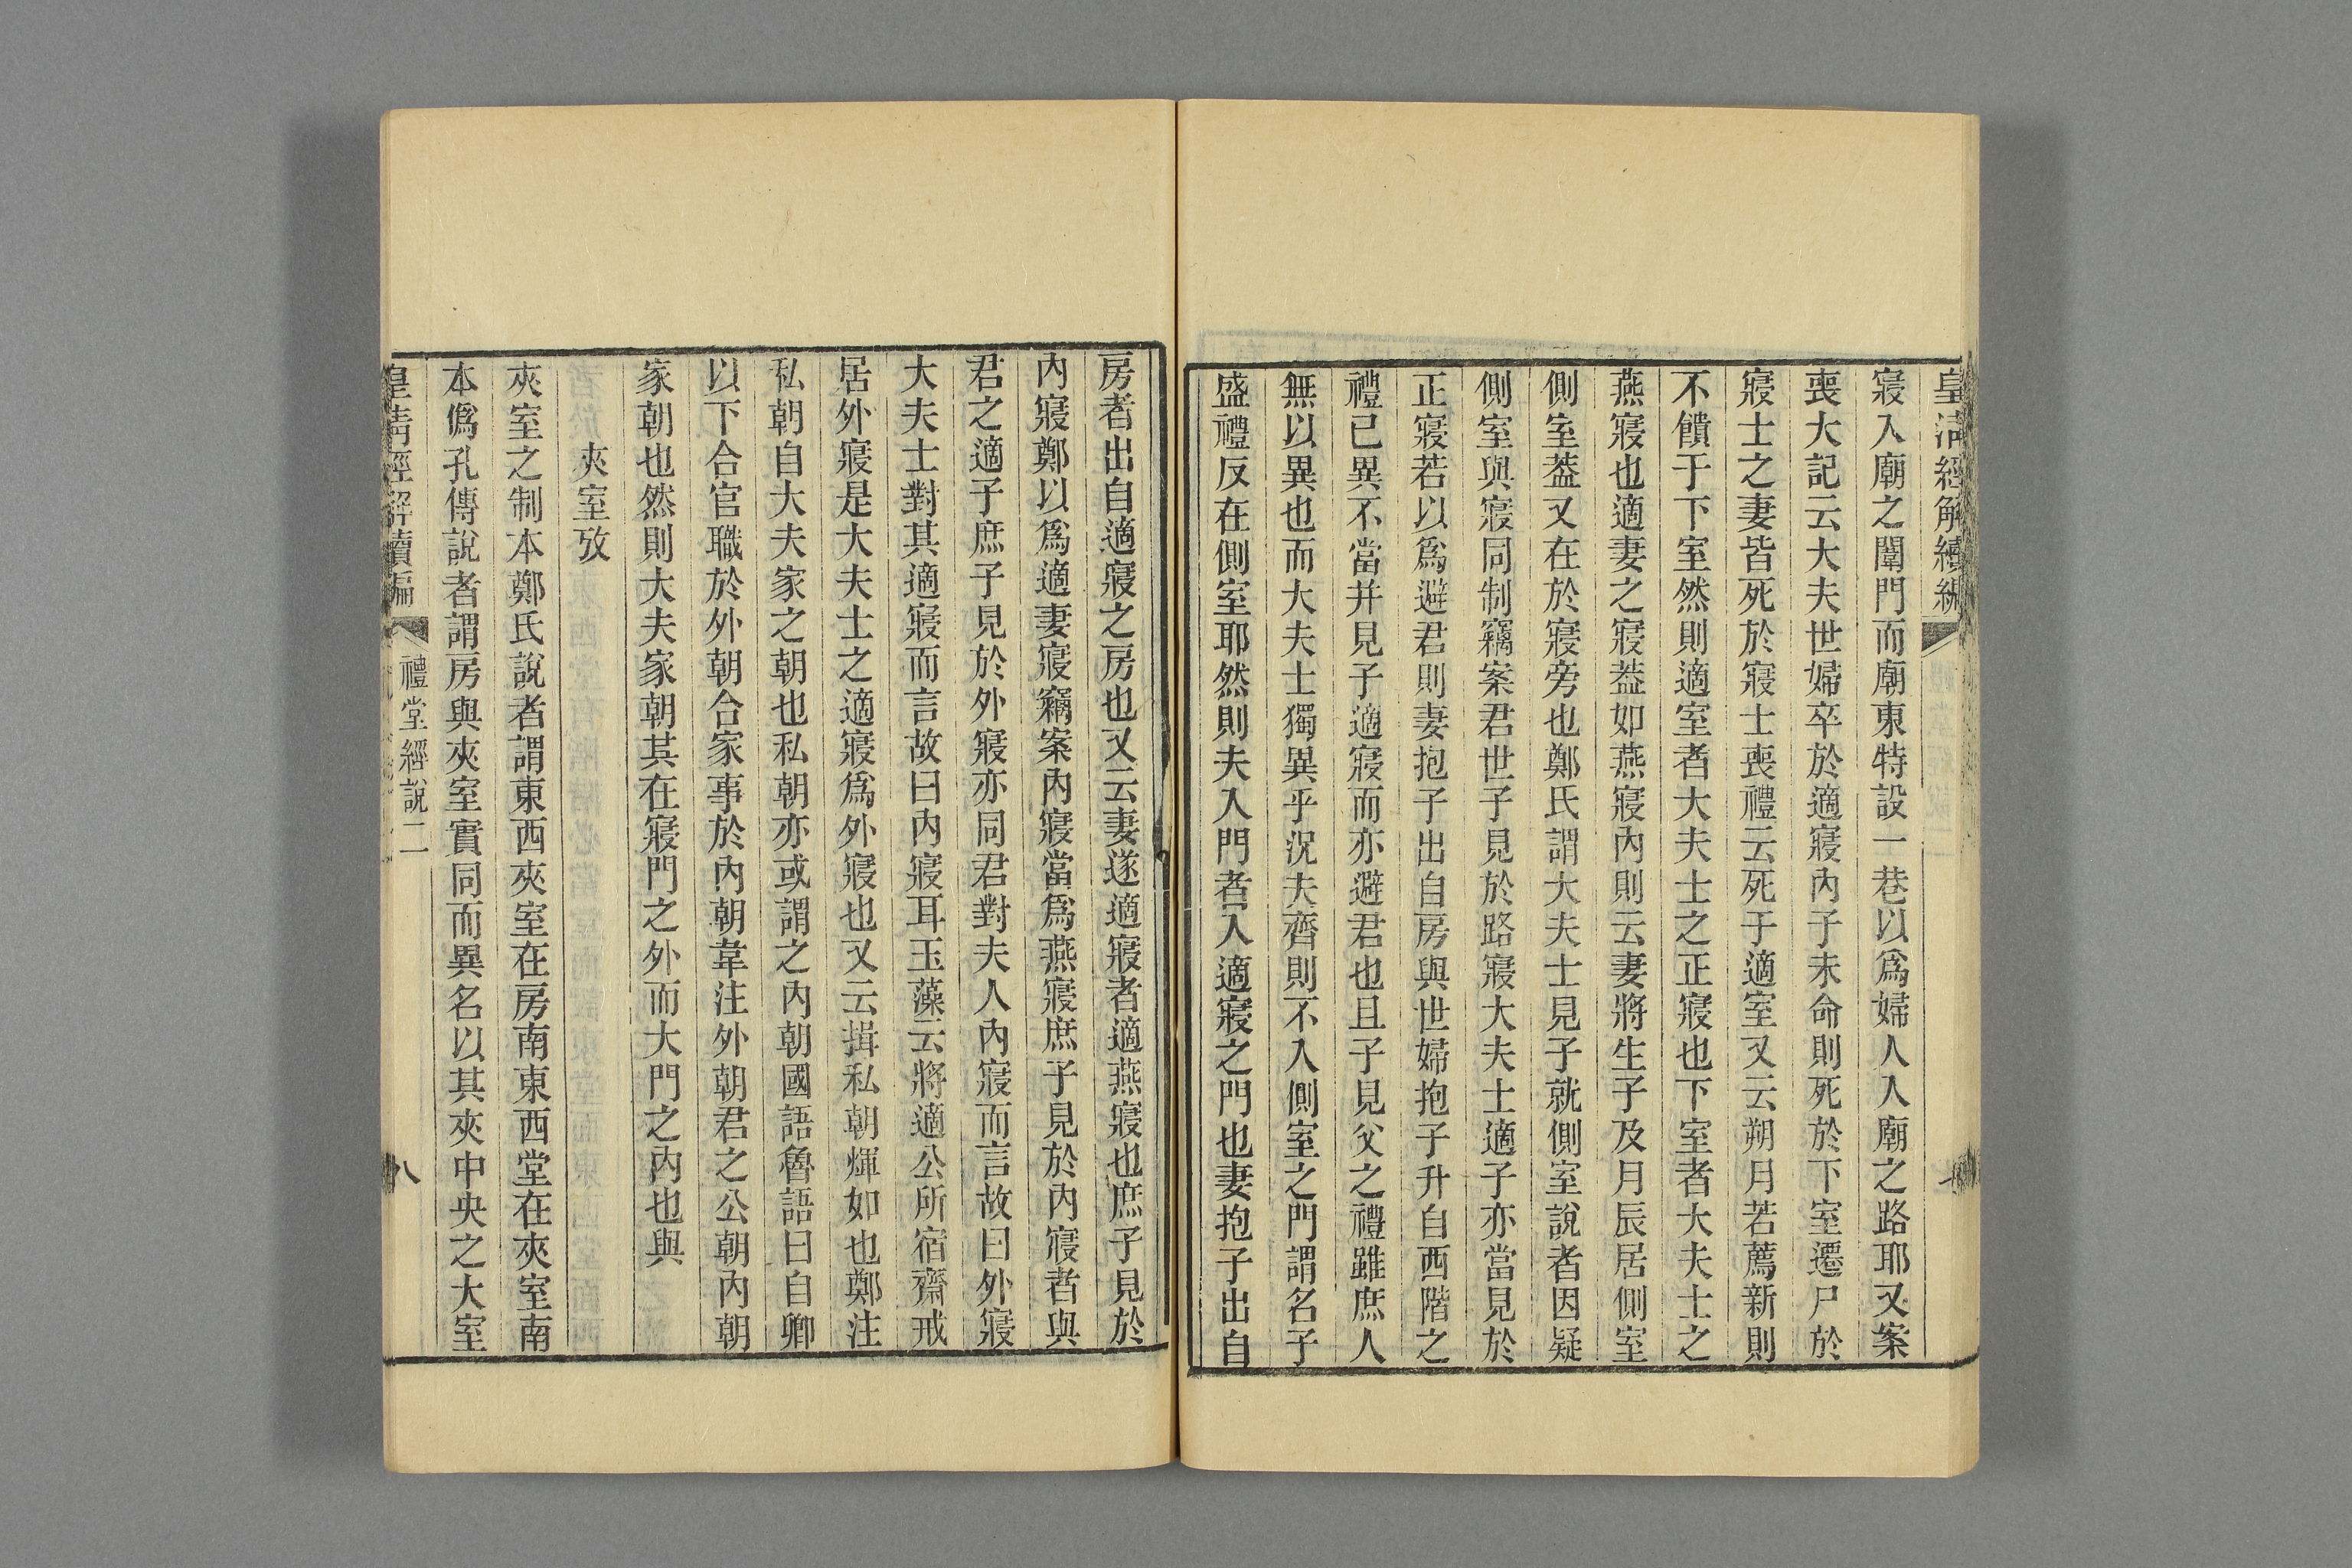 皇淸經解續編
寢入廟之闈門而廟東特設一巷以爲婦人入廟之路耶又案
喪大記云大夫世婦卒於適寢內子未命則死於下室遷尸於
寢士之妻皆死於寢士喪禮云死于適室又云朔月若薦新則
不饋于下室然則適室者大夫士之正寢也下室者大夫士之
燕寢也適妻之寢葢如燕寢內則云妻將生子及月辰居側室
側室葢又在於寢旁也鄭氏謂大夫士見子就側室說者因疑
側室與寢同制竊案君世子見於路寢大夫士適子亦當見於
正寢若以爲避君則妻抱子出自房與世婦抱子升自西階之
禮已異不當并見子適寢而亦避君也且子見父之禮雖庶人
無以異也而大夫士獨異乎況夫齊則不入側室之門謂名子
盛禮反在側室耶然則夫入門者入適寢之門也妻抱子出自
房者出自適寢之房也又云妻遂適寢者適燕寢也庶子見於
內寢鄭以爲適妻寢竊案內寢當爲燕寢庶子見於內寢者與
君之適子庶子見於外寢亦同君對夫人內寢而言故曰外寢
大夫士對其適寢而言故曰內寢耳玉藻云將適公所宿齋戒
居外寢是大夫士之適寢爲外寢也又云揖私朝煇如也鄭注
私朝自大夫家之朝也私朝亦或謂之內朝國語魯語曰自卿
以下合官職於外朝合家事於內朝韋注外朝君之公朝內朝
家朝也然則大夫家朝其在寢門之外而大門之內也與
夾室攷
夾室之制本鄭氏說者謂東西夾室在房南東西堂在夾室南
本僞孔傳說者謂房與夾室實同而異名以其夾中央之大室
皇淸經解續編
禮堂經說二
八